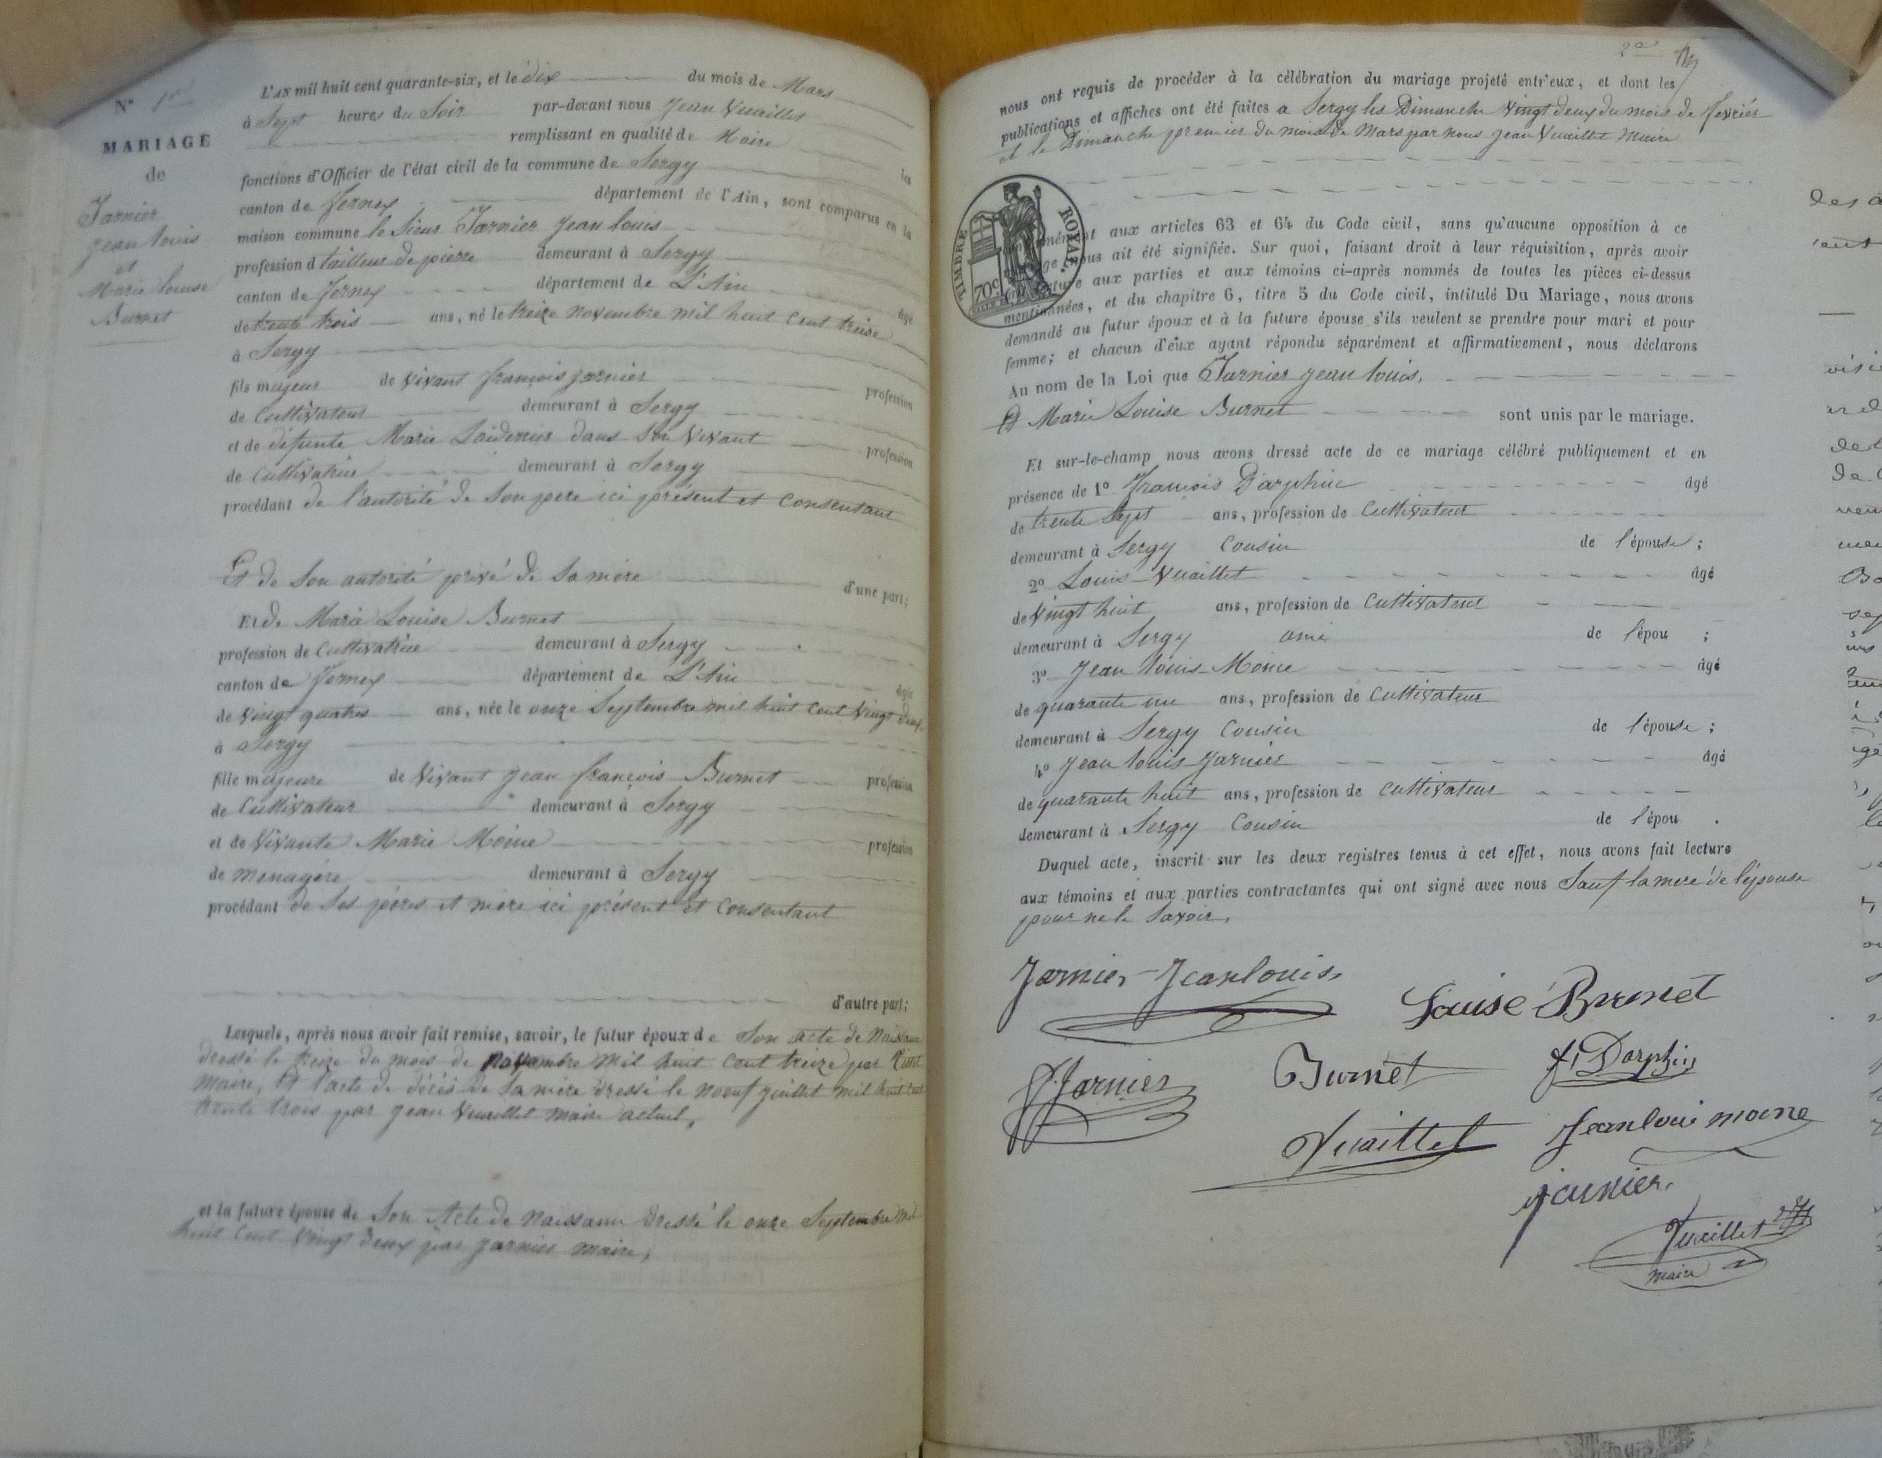 N° 1er
MARIAGE
de
Jarnier
Jean Louis
et
Marie Louise
Burnet
L'AN mil huit cent quarante-six, et le dix du mois de Mars
à Sept heures du Soir par-devant nous Jean Vuaillet
remplissant en qualité de Maire les
fonctions d'Officier de l'état civil de la commune de Sergy
canton de Ferney département de l'Ain, sont comparus en la
maison commune le Sieur Jarnier Jean Louis
profession d tailleur de pierre demeurant à Sergy
canton de Ferney département de L'Ain âgé
de trente trois ans, né le treize novembre mil huit cent treise
à Sergy
fils majeur de vivant françois Jarnier profession
de Cultivateur demeurant à Sergy
et de défunte Marie dans Son vivant profession
de Cultivatrice demeurant à Sergy
procédant de l'autorité de Son pere ici présent et Consentant
Et de Son autorité privé de Sa mère d'une part;
Et de Marie Louise Burnet
profession de Cultivatrice demeurant à Sergy
canton de Ferney département de L'Ain âgée
de vingt quatre ans, née le onze Septembre mil huit cent vingt deux
à Sergy
fille majeure de vivant Jean françois Burnet profession
de Cultivateur demeurant à Sergy
et de vivante Marie Moine profession
de menagére demeurant à Sergy
procédant de Ses péres et mère ici présent et Consentant
d'autre part;
Lesquels, après nous avoir fait remise, savoir, le futur époux de Son acte de Naissance
dressé le treize du mois de Novembre mil huit cent treize par
maire, Et l'acte de décès de Sa mère dressé le noeuf juillet mil huit cent
trente trois par Jean Vuaillet maire actuel,
et la future épouse de Son Acte de naissance dressé le onze Septembre mil
huit cent vingt deux par Jarnier maire,
nous ont requis de procéder à la célébration du mariage projeté entr'eux, et dont les
publications et affiches ont été faites a Sergy les Dimanche vingt deux du mois de fevriér
et le Dimanche premier du mois de Mars par nous Jean Vuaillet maire
TIMBRE ROYAL
70c
aux articles 63 et 64 du Code civil, sans qu'aucune opposition à ce
nous ait été signifiée. Sur quoi, faisant droit à leur réquisition, après avoir
aux parties et aux témoins ci-après nommés de toutes les pièces ci-dessus
mentionnées, et du chapitre 6, titre 5 du Code civil, intitulé Du Mariage, nous avons
demandé au futur époux et à la future épouse s'ils veulent se prendre pour mari et pour
femme; et chacun d'eux ayant répondu séparément et affirmativement, nous déclarons
Au nom de la Loi que Jarnier Jean Louis,
Et Marie Louise Burnet sont unis par le mariage.
Et sur-le-champ nous avons dressé acte de ce mariage célébré publiquement et en
présence de 1° François Darphin âgé
de trente Sept ans, profession de Cultivateur
demeurant à Sergy Cousin de l'épouse;
2° Louis Vuaillet âgé
de vingt huit ans, profession de Cultivateur
demeurant à Sergy ami de l'épou ;
3° Jean Louis Moine âgé
de quarante un ans, profession de Cultivateur
demeurant à Sergy Cousin de l'épouse;
4° Jean Louis Jarnier âgé
de quarante huit ans, profession de Cultivateur
demeurant à Sergy Cousin de l'épou .
Duquel acte, inscrit sur les deux registres tenus à cet effet, nous avons fait lecture
aux témoins et aux parties contractantes qui ont signé avec nous Sauf la mere de l'épouse
pour ne le Savoir,
Jarnier Jeanlouis
Louise Burnet
F Jarnier
Burnet
f. Darphin
Vuaillet
Jeanloui moine
jarnier
Vuaillet
maire